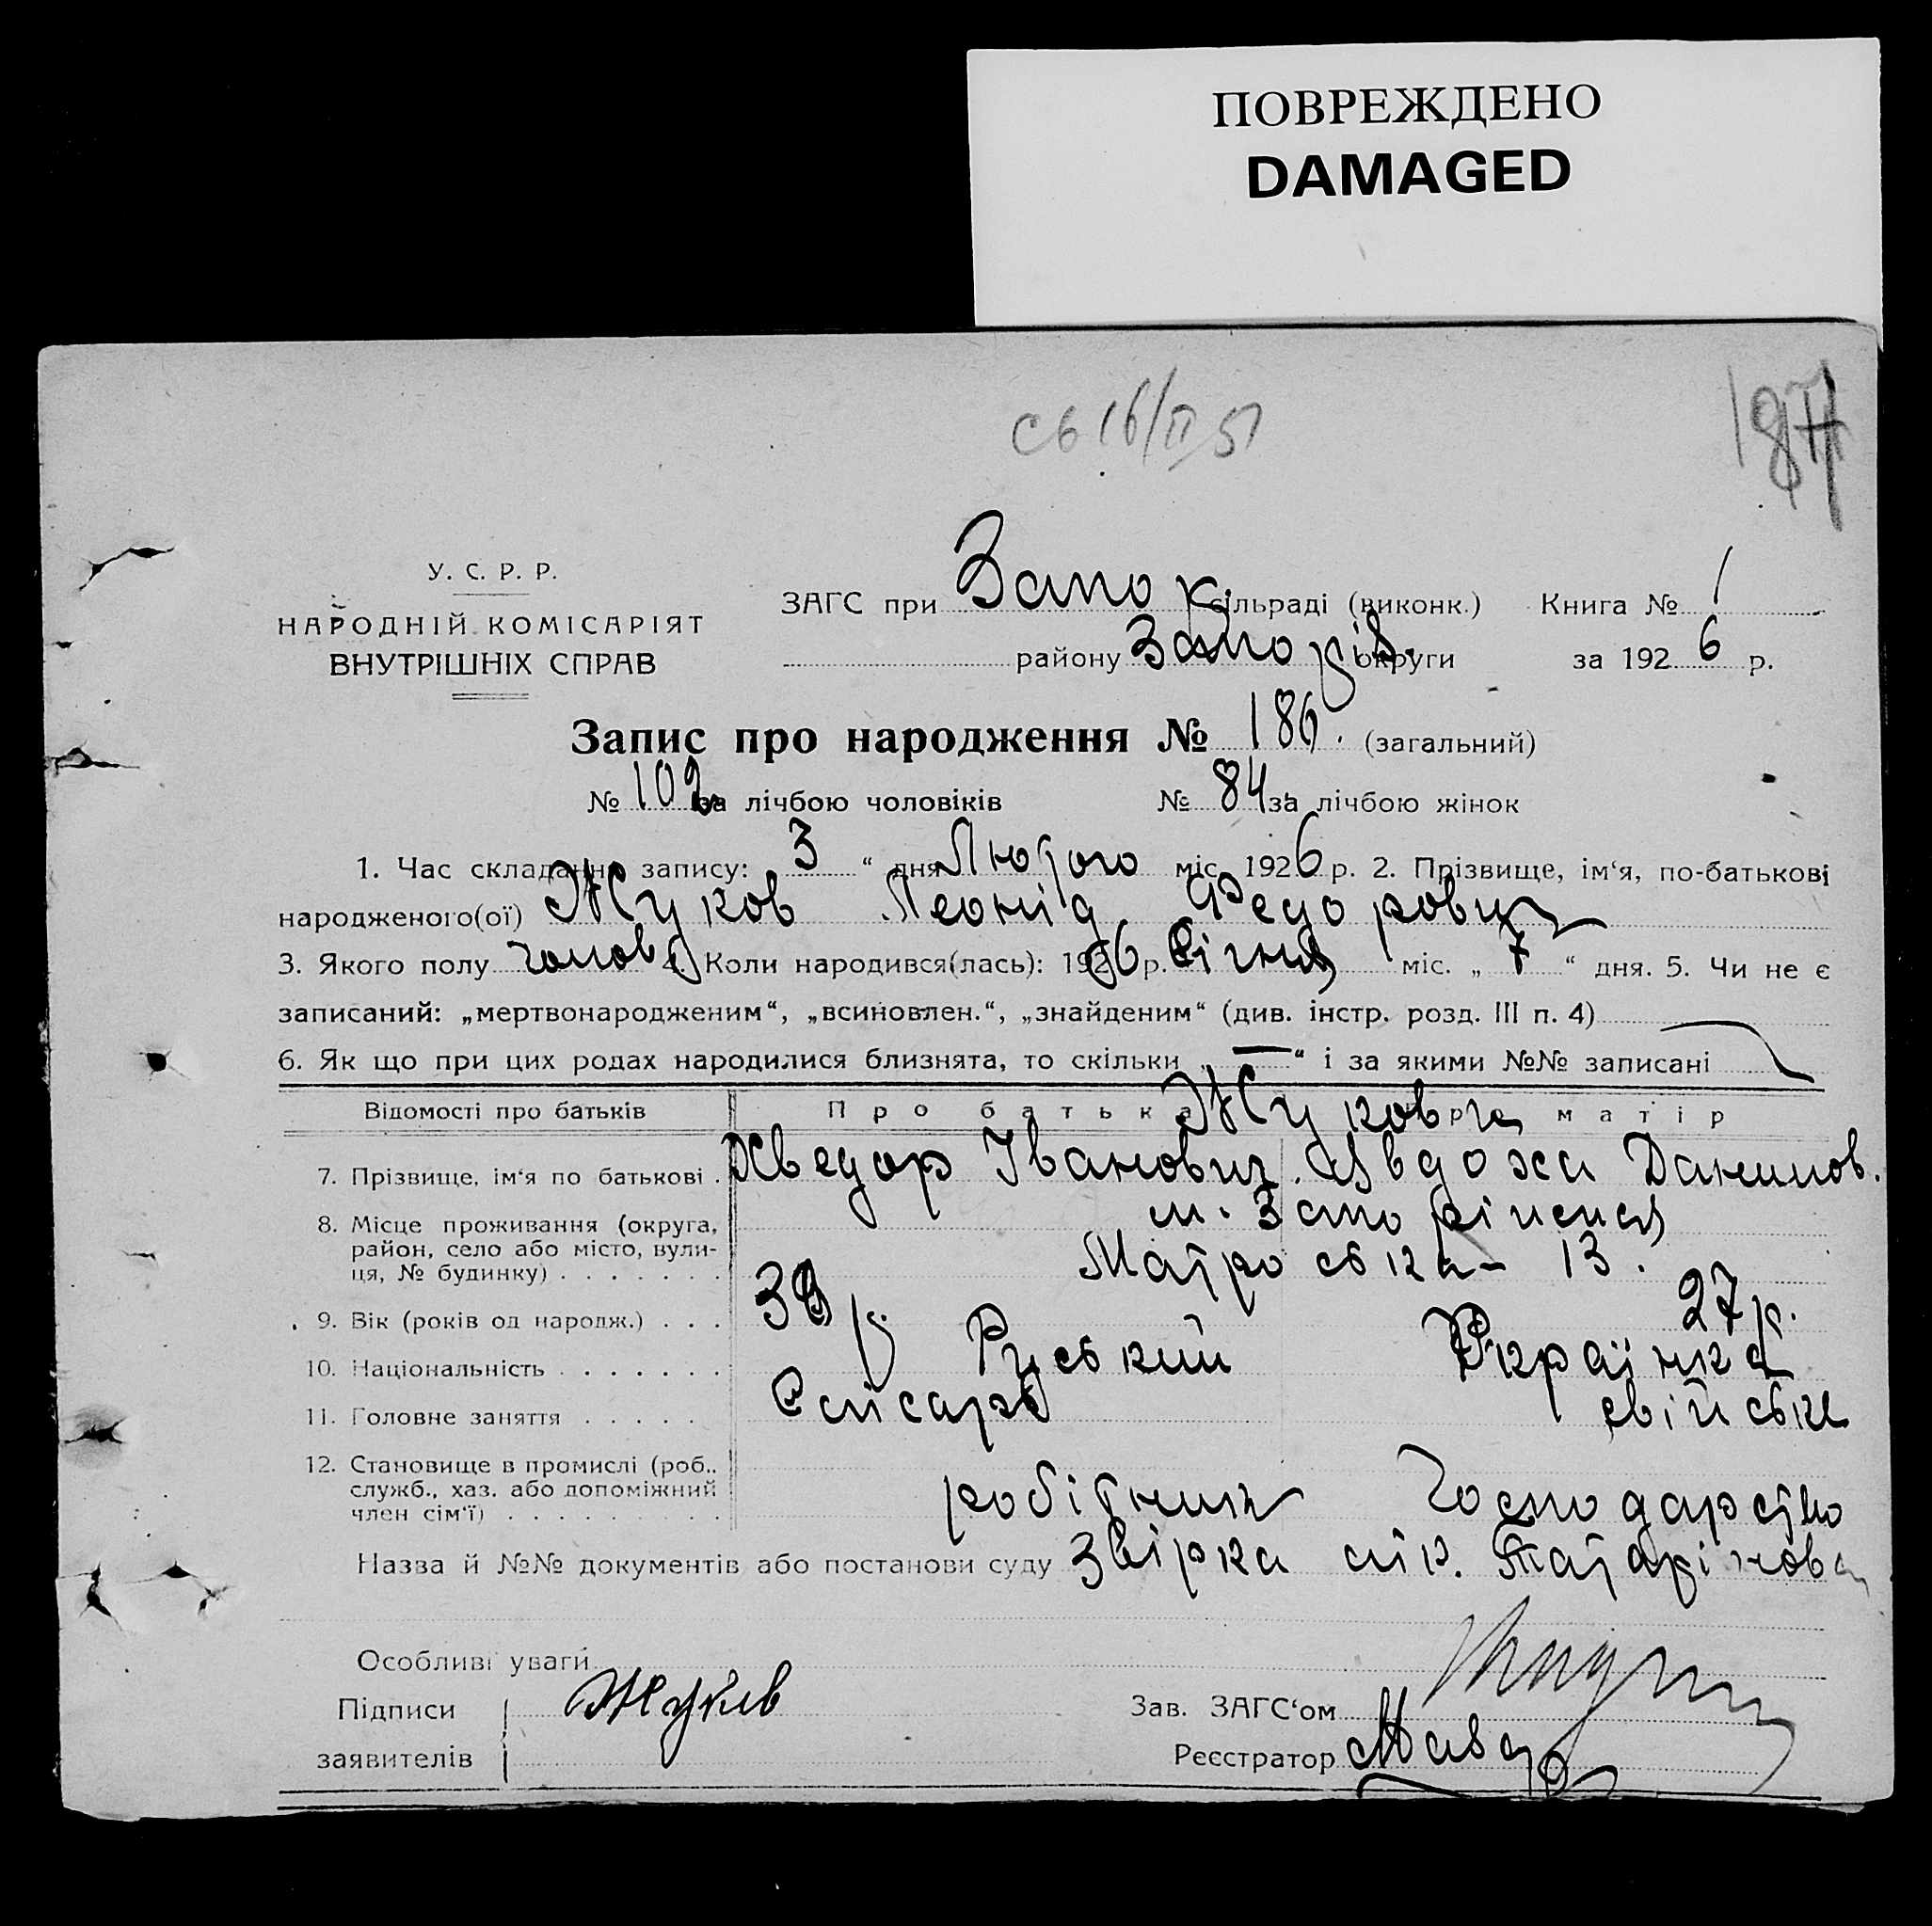 ПОВРЕЖДЕНО
DAMAGED
Сб 16/II 51
187
У. С. Р. Р.
НАРОДНІЙ КОМІСАРІЯТ
ВНУТРІШНІХ СПРАВ
ЗАГС при Запор. сільраді (виконк.) Книга № 1
району Запоріз. округи за 1926 р.
Запис про народження № 186. (загальний)
№ 102 за лічбою чоловіків № 84 за лічбою жінок
1. Час складання запису: 3 “ дня Лютого міс. 1926 р. 2. Прізвище, ім‘я, по-батькові
народженого(ої) Жуков Леонід Федорович
3. Якого полу чолов. 4. Коли народився(лась): 1926 р. Січня міс. „ 7 “ дня. 5. Чи не є
записаний: „мертвонародженим“, „всиновлен.“, „знайденим“ (див. інстр. розд. III п. 4)
6. Як що при цих родах народилися близнята, то скільки „ — “ і за якими №№ записані
Відомості про батьків Про батька Про матір
Жукови
7. Прізвище, ім‘я по батькові . Хведор Іванович. Явдоха Данилов.
8. Місце проживання (округа, район, село або місто, вулиця, № будинку) . . . . . . . м. Запоріжжя
Матроська - 13.
9. Вік (років од народж.) . . . 39 р. 27 р.
10. Національність . . . . . . . Руський Українка
11. Головне заняття . . . . . Слісарь свійське
12. Становище в промислі (роб., служб., хаз. або допоміжний член сім‘ї) . . . . . . . . . робітник господарство
Назва й №№ документів або постанови суду Звірка лік. Татарінова
Особливі уваги
Підписи Жуков Зав. ЗАГС‘ом
заявителів Реєстратор